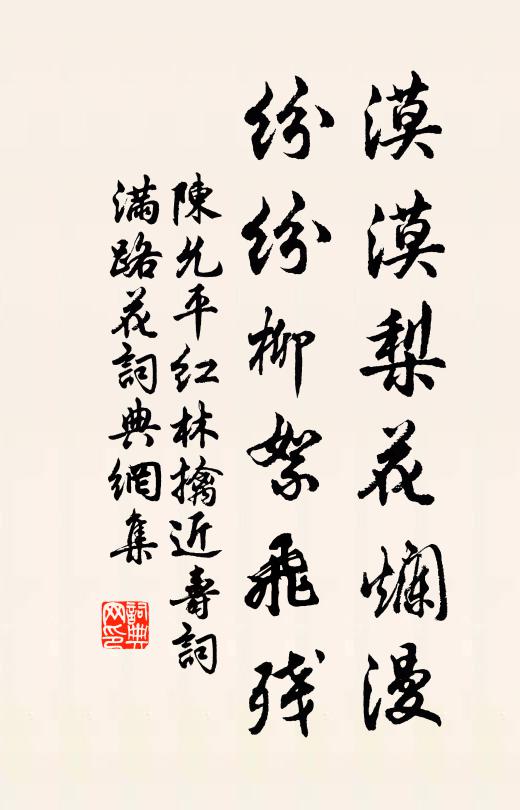 漠漠梨花爛漫
紛紛柳絮飛殘
陳允平紅林擒近壽詞
滿路花詞典網集
詞典網印